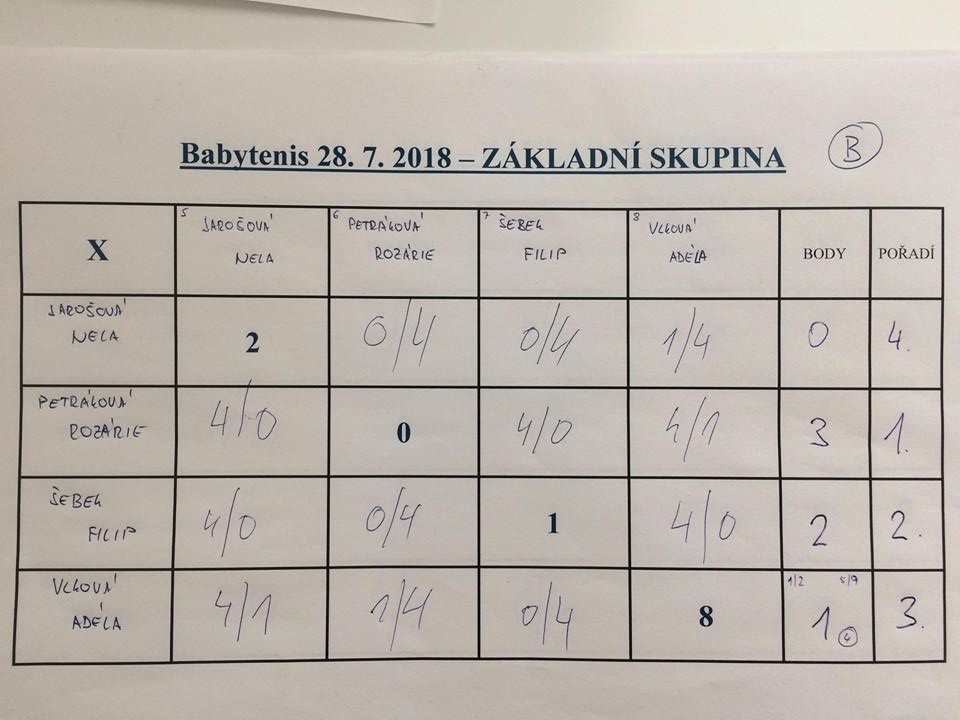 Babytenis 28. 7. 2018 – ZÁKLADNÍ SKUPINA B
X 5 JAROŠOVÁ NELA 6 PETRÁKOVÁ ROZÁRIE 7 ŠEBEK FILIP 8 VLKOVÁ ADÉLA BODY POŘADÍ
JAROŠOVÁ NELA 2 0/4 0/4 1/4 0 4.
PETRÁKOVÁ ROZÁRIE 4/0 0 4/0 4/1 3 1.
ŠEBEK FILIP 4/0 0/4 1 4/0 2 2.
VLKOVÁ ADÉLA 4/1 1/4 0/4 8 1/2 5/9 1 4 3.